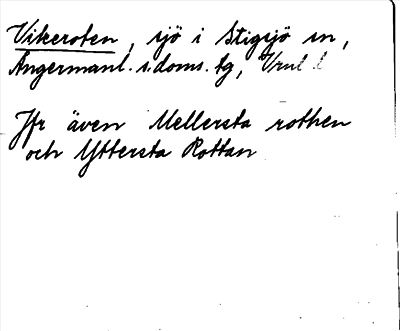 Vikeroten, sjö i Stigsjö sn,
Ångermanl. s. doms. tg, Vrnl l
Jfr även Mellersta rothen
och Yttersta Rottan